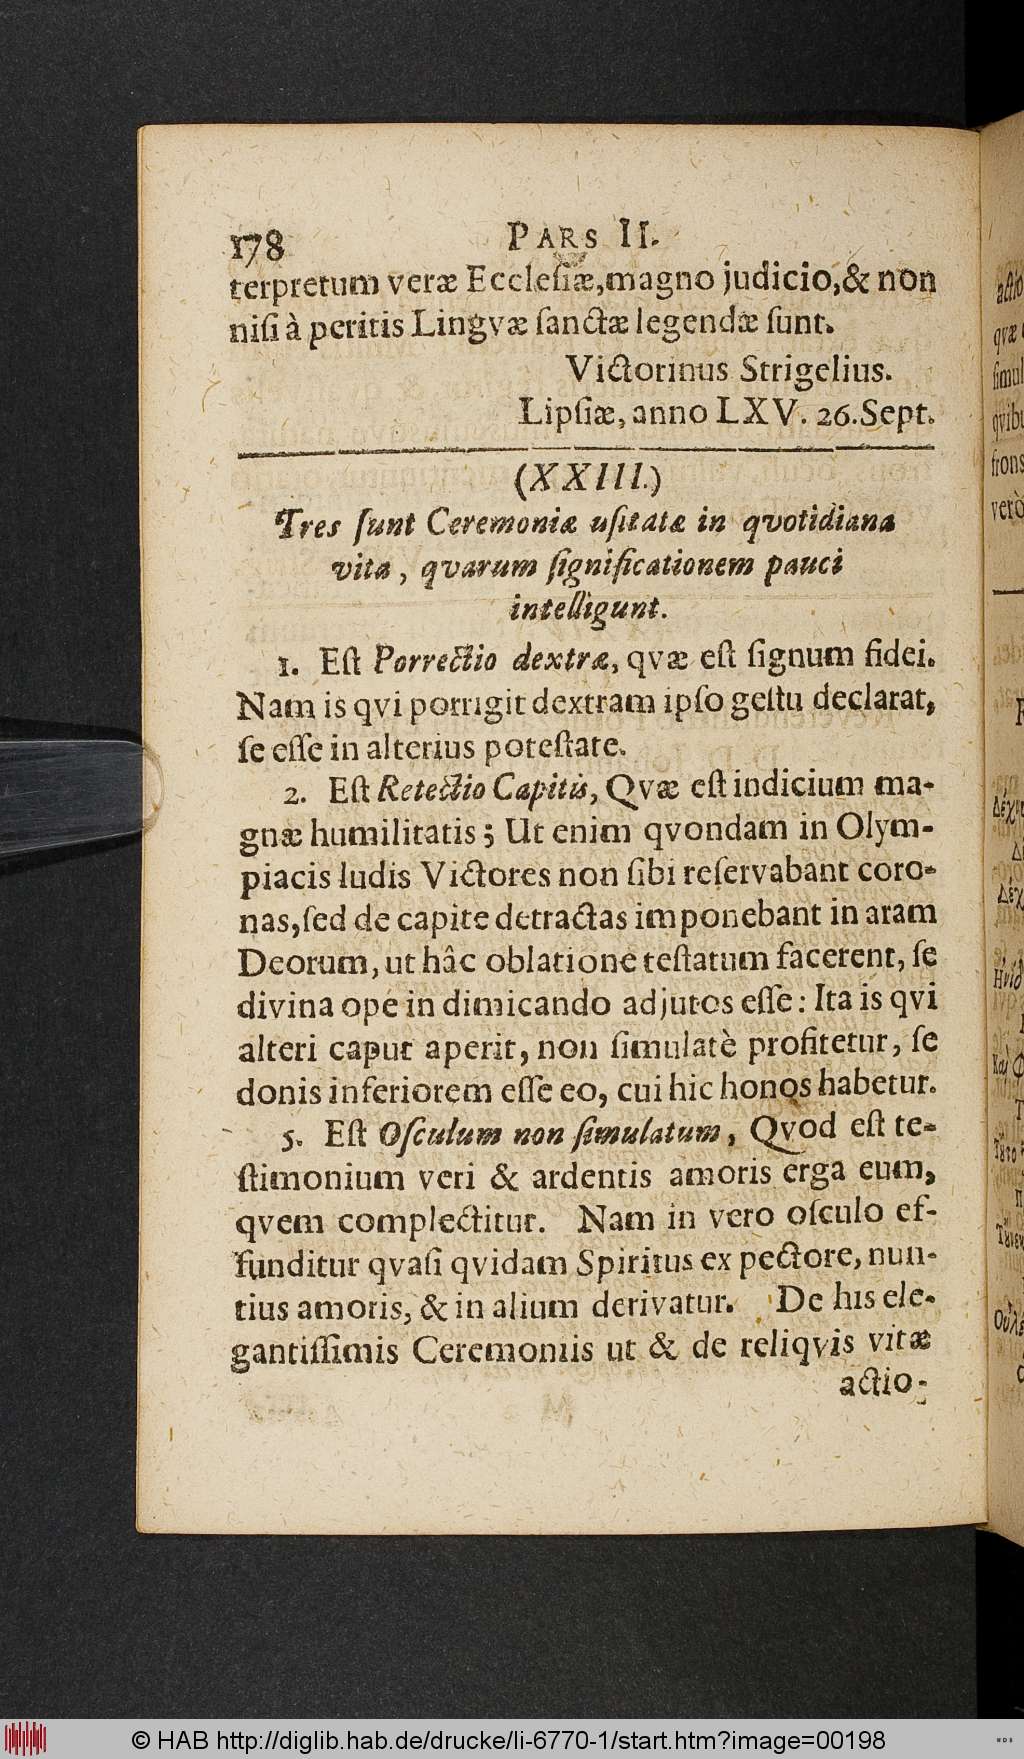 178 PARS II.
terpretum veræ Ecclesiæ, magno judicio, & non
nisi à peritis Lingvæ sanctæ legendæ sunt.
Victorinus Strigelius.
Lipsiæ, anno LXV. 26. Sept.
(XXIII.)
Tres sunt Ceremoniæ usitatæ in qvotidiana
vita, qvarum significationem pauci
intelligunt.
1. Est Porrectio dextræ, qvæ est signum fidei.
Nam is qvi porrigit dextram ipso gestu declarat,
se esse in alterius potestate.
2. Est Retectio Capitis, Qvæ est indicium ma-
gnæ humilitatis; Ut enim qvondam in Olym-
piacis ludis Victores non sibi reservabant coro-
nas, sed de capite detractas imponebant in aram
Deorum, ut hâc oblatione testatum facerent, se
divina ope in dimicando adjutos esse: Ita is qvi
alteri caput aperit, non simulatè profitetur, se
donis inferiorem esse eo, cui hic honos habetur.
5. Est Osculum non simulatum, Qvod est te-
stimonium veri & ardentis amoris erga eum,
qvem complectitur. Nam in vero osculo ef-
funditur qvasi qvidam Spiritus ex pectore, nun-
tius amoris, & in alium derivatur. De his ele-
gantissimis Ceremoniis ut & de reliqvis vitæ
actio-
© HAB http://diglib.hab.de/drucke/li-6770-1/start.htm?image=00198